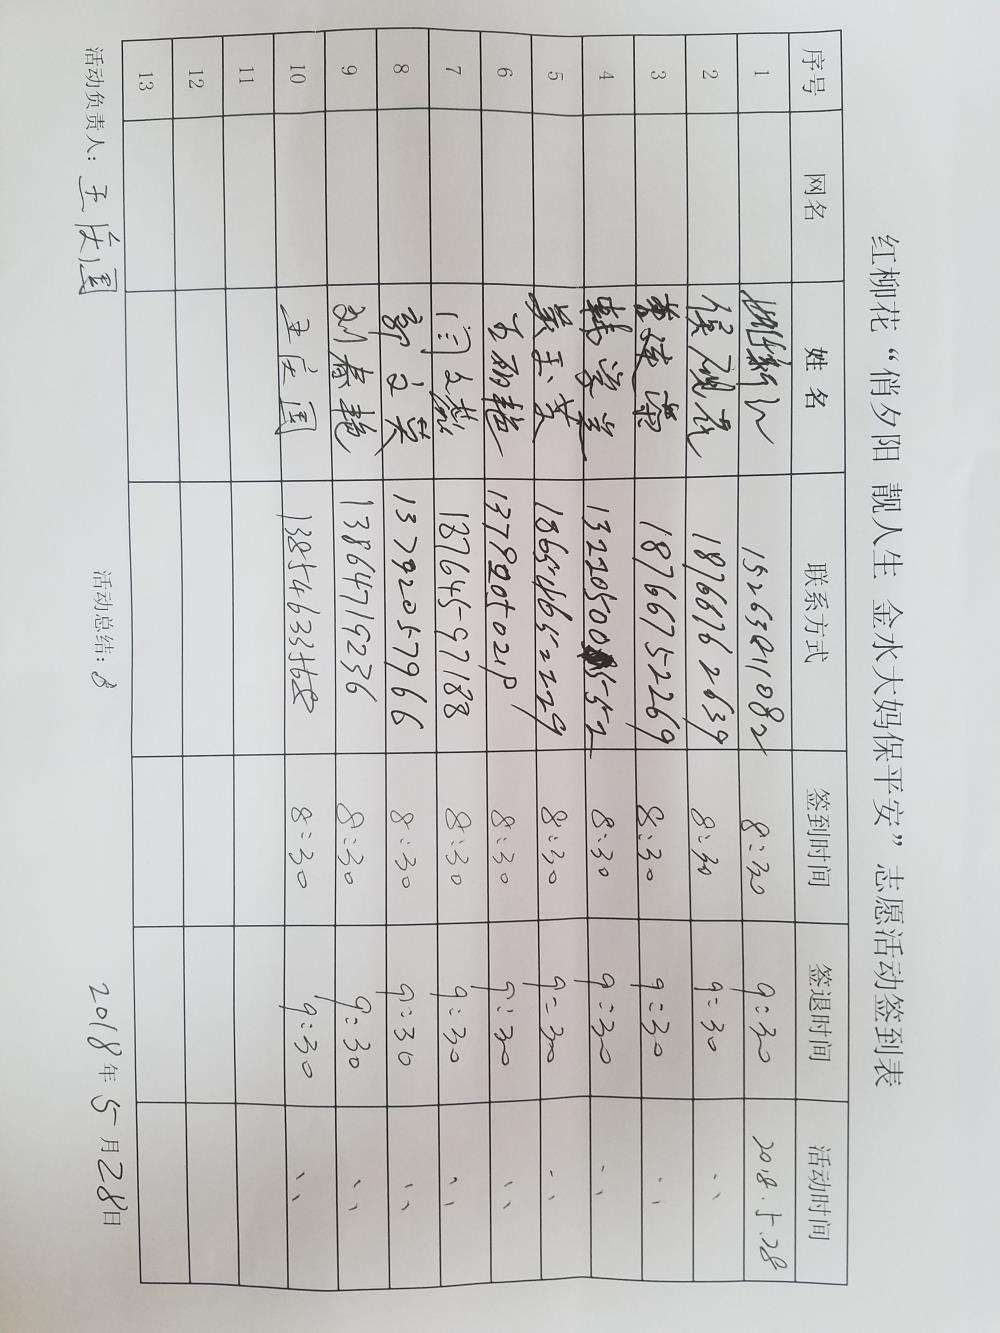 红柳花“俏夕阳 靓人生 金水大妈保平安”志愿活动签到表
序号 网名 姓名 联系方式 签到时间 签退时间 活动时间
1 15263811082 8:30 9:30 2018.5.28
2 侯砚花 18766762639 8:30 9:30 〃
3 18766752269 8:30 9:30 〃
4 韩学兰 8:30 9:30 〃
5 吴玉英 18654652229 8:30 9:30 〃
6 王丽艳 8:30 9:30 〃
7 闫文慧 18764597188 8:30 9:30 〃
8 郭文英 13792057966 8:30 9:30 〃
9 刘春艳 13864719236 8:30 9:30 〃
10 王庆国 13854633568 8:30 9:30 〃
11
12
13
活动负责人：王庆国 活动总结： 2018年5月28日